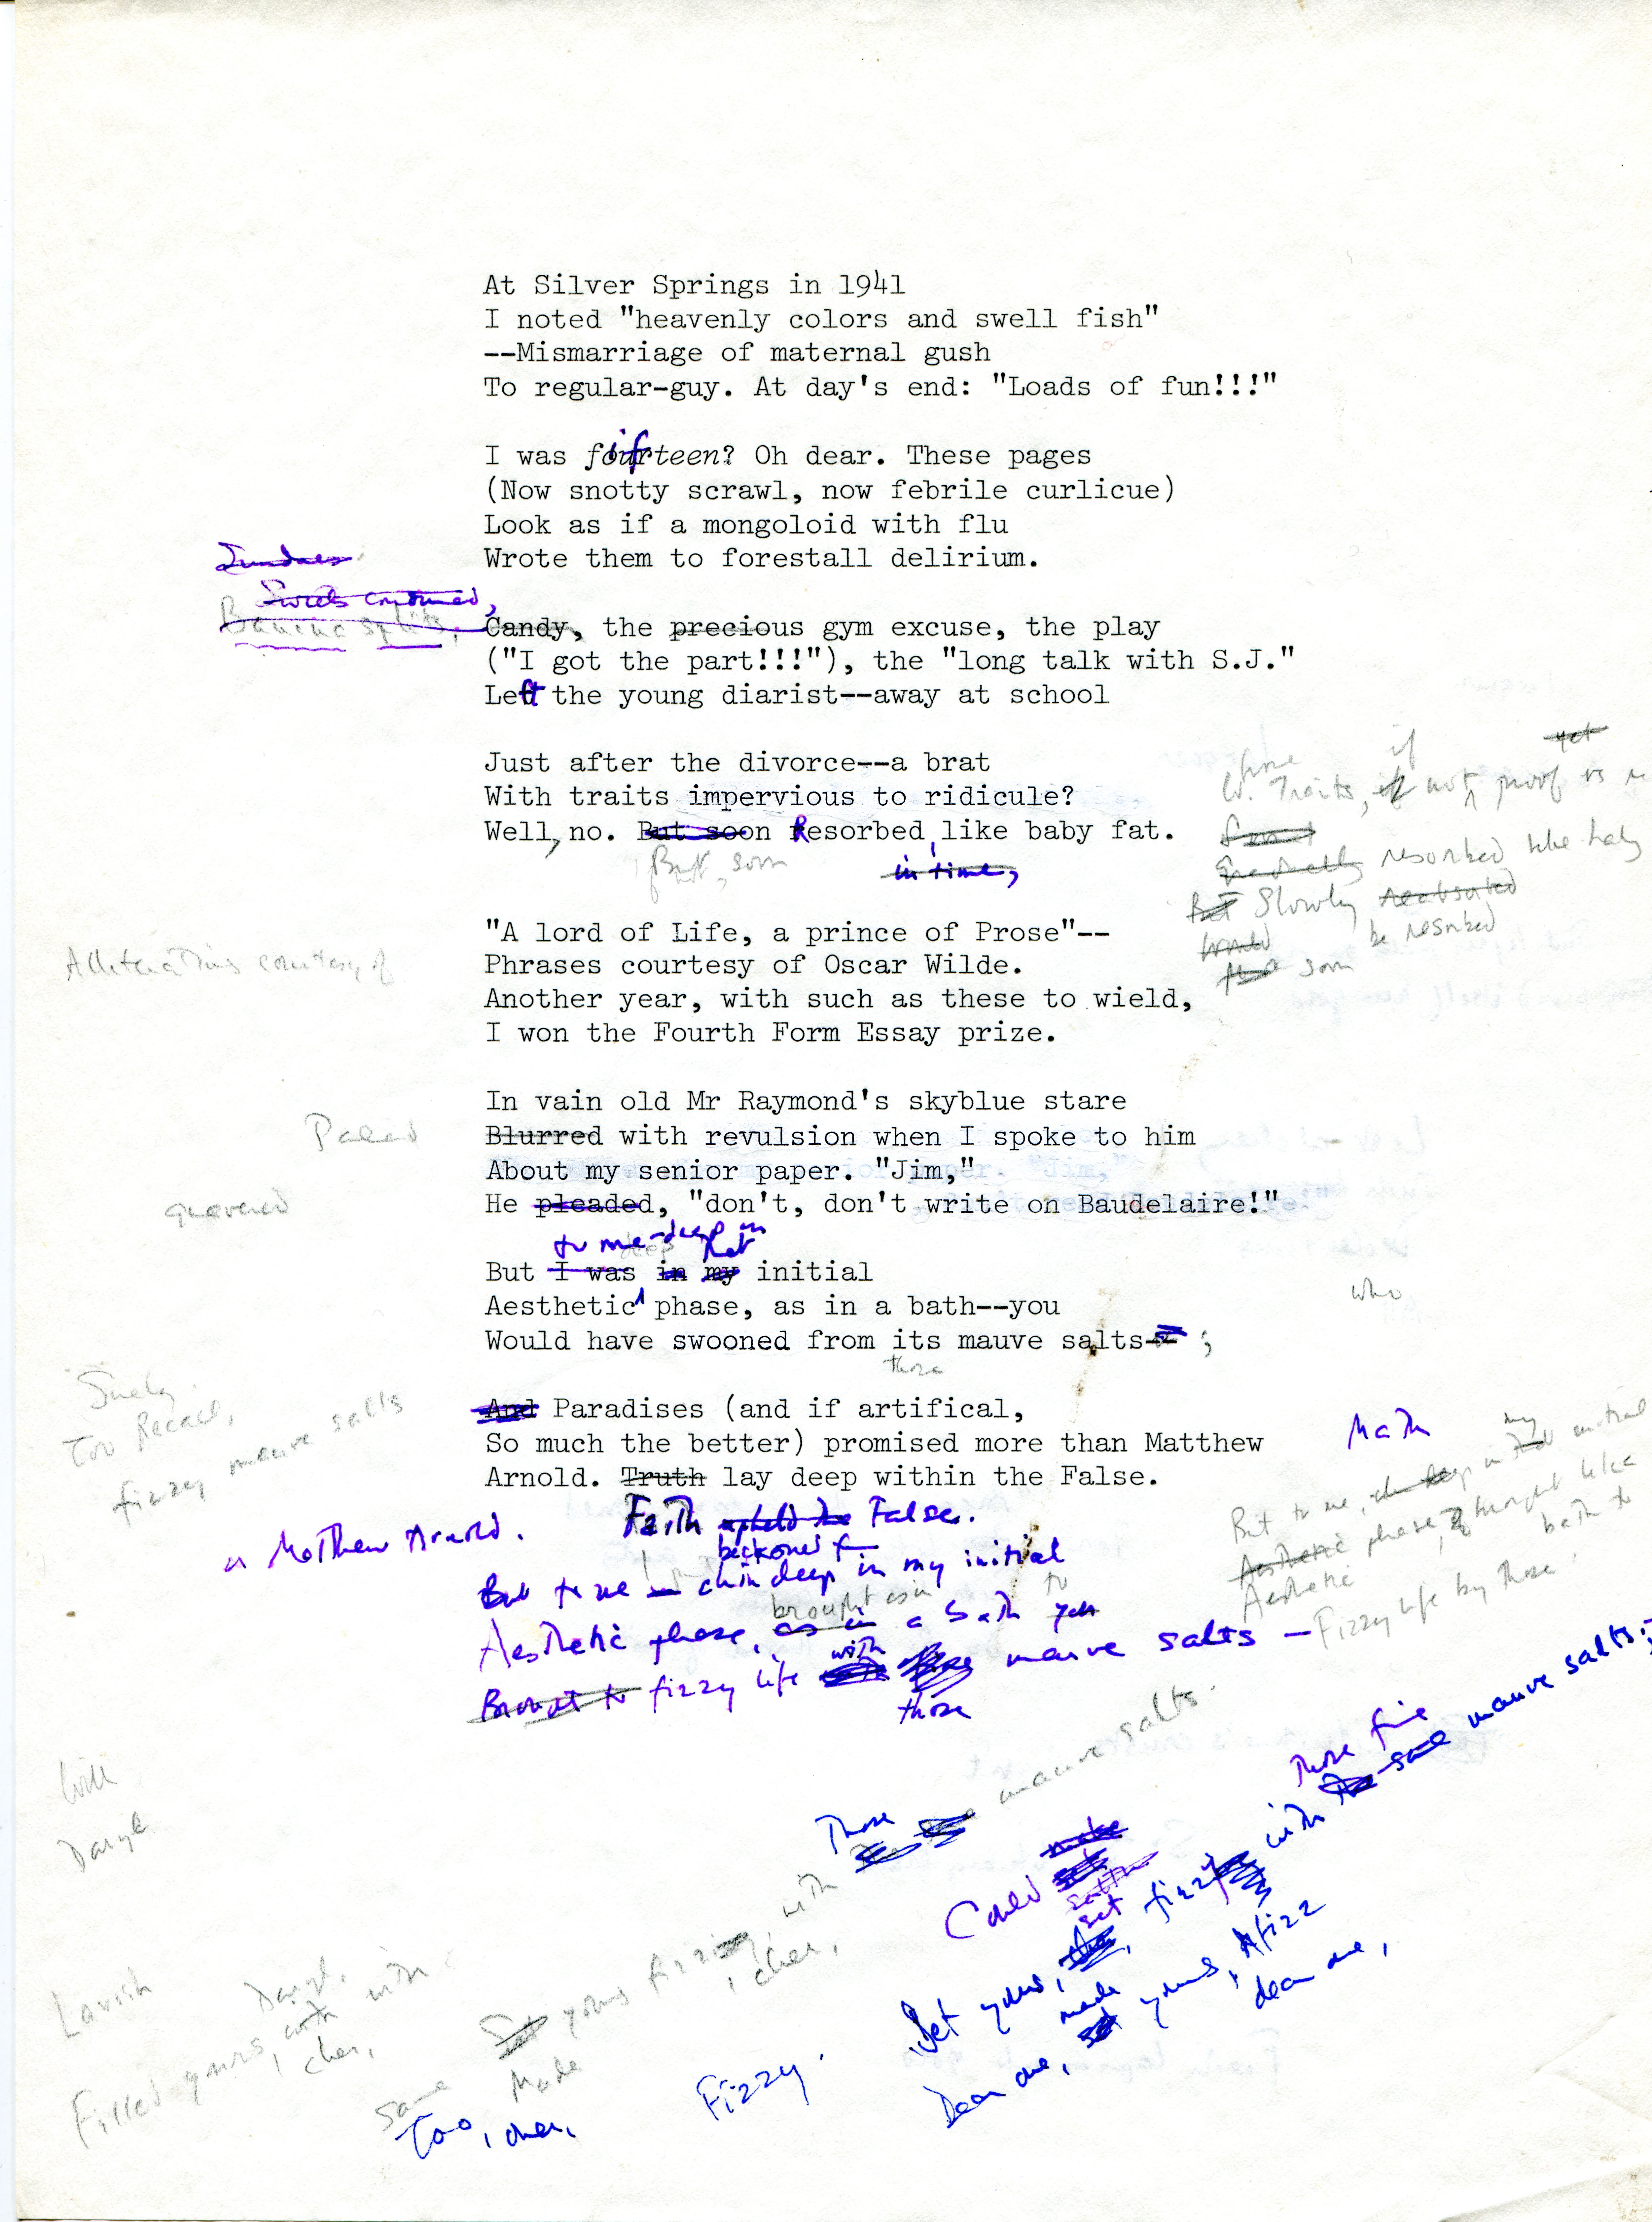 At Silver Springs in 1941
I noted "heavenly colors and swell fish"
--Mismarriage of maternal gush
To regular-guy. At day's end: "Loads of fun!!!"
if
I was fourteen? Oh dear. These pages
(Now snotty scrawl, now febrile curlicue)
Look as if a mongoloid with flu
Sundaes
Wrote them to forestall delirium.
Sweets consumed,
Banana splits, Candy, the precious gym excuse, the play
("I got the part!!!"), the "long talk with S.J."
Left the young diarist--away at school
Just after the divorce--a brat
With traits impervious to ridicule?
Well, no. But soon Resorbed, like baby fat.
But, soon
in time,
yet
if
W. Traits, if not proof vs
resorbed like baby
But Slowly reabsorbed
would be resorbed
soon
"A lord of Life, a prince of Prose"--
Alliterations courtesy of
Phrases courtesy of Oscar Wilde.
Another year, with such as these to wield,
I won the Fourth Form Essay prize.
In vain old Mr Raymond's skyblue stare
Paled
Blurred with revulsion when I spoke to him
About my senior paper. "Jim,"
quavered
He pleaded, "don't, don't write on Baudelaire!"
to me-deep in
deep that
But I was in my initial
who
Aesthetic phase, as in a bath--you
Would have swooned from its mauve salts-- ;
those
Surely
Too Recall,
fizzy mauve salts
And Paradises (and if artifical,
So much the better) promised more than Matthew
Math
Arnold. Truth lay deep within the False.
or Matthew Arnold.
Faith upheld the False.
beckoned from
But to me — chin deep in my initial
brought as in
to
Aesthetic phase, as in a bath you
Brought to fizzy life with those mauve salts —
those
my
But to me, deep in initial
Aesthetic phase, brought like
Aesthetic bath to
Fizzy life by those
Those mauve salts.
with
Those fine
with the same mauve salts.
Could make
set
Set yours, fizzy
made
set yours, Afizz
Dear one, dear one,
Fizzy.
Set yours fizzing,
, cher,
Made
Same
Too, cher,
Lavish
Filled yours, with
, cher,
with